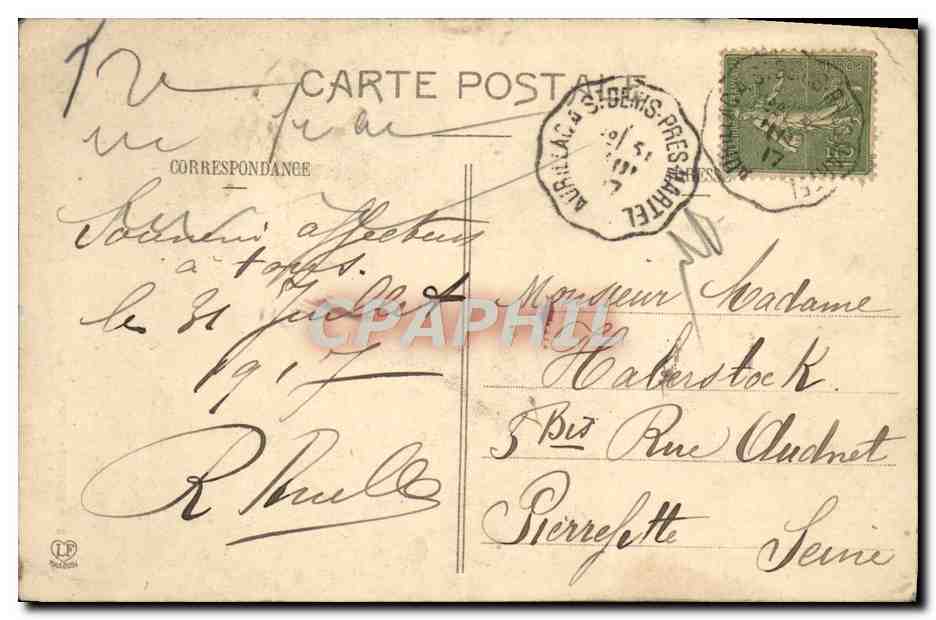 CARTE POSTALE
CORRESPONDANCE
AURILLAC A ST DENIS-PRES-MARTEL
17
15c
Souvenir affectueux
à tous.
le 31 Juillet
1917
Monsieur Madame
Haberstock
5 Bis Rue Audnet
Pierrefitte
Seine
LF
CPAPHIL